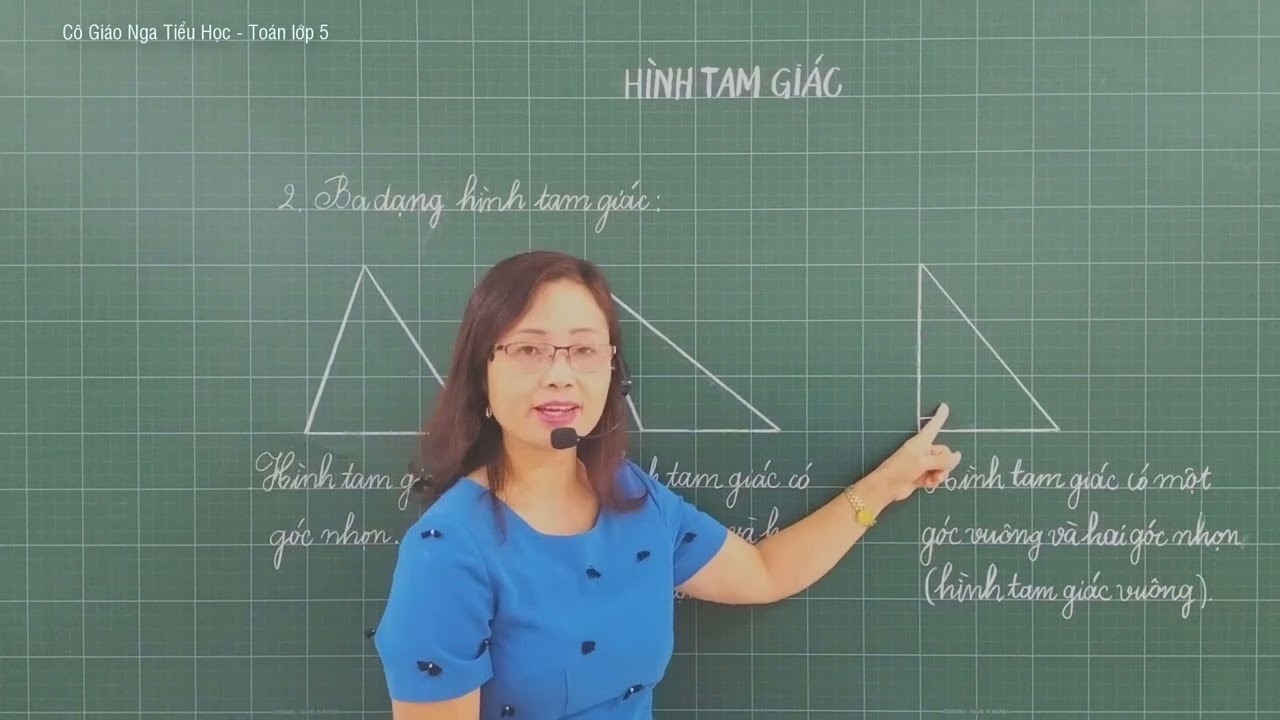 Cô Giáo Nga Tiểu Học - Toán lớp 5
HÌNH TAM GIÁC
2. Ba dạng hình tam giác:
Hình tam
góc nhọn.
tam giác có
Hình tam giác có một
góc vuông và hai góc nhọn
(hình tam giác vuông).